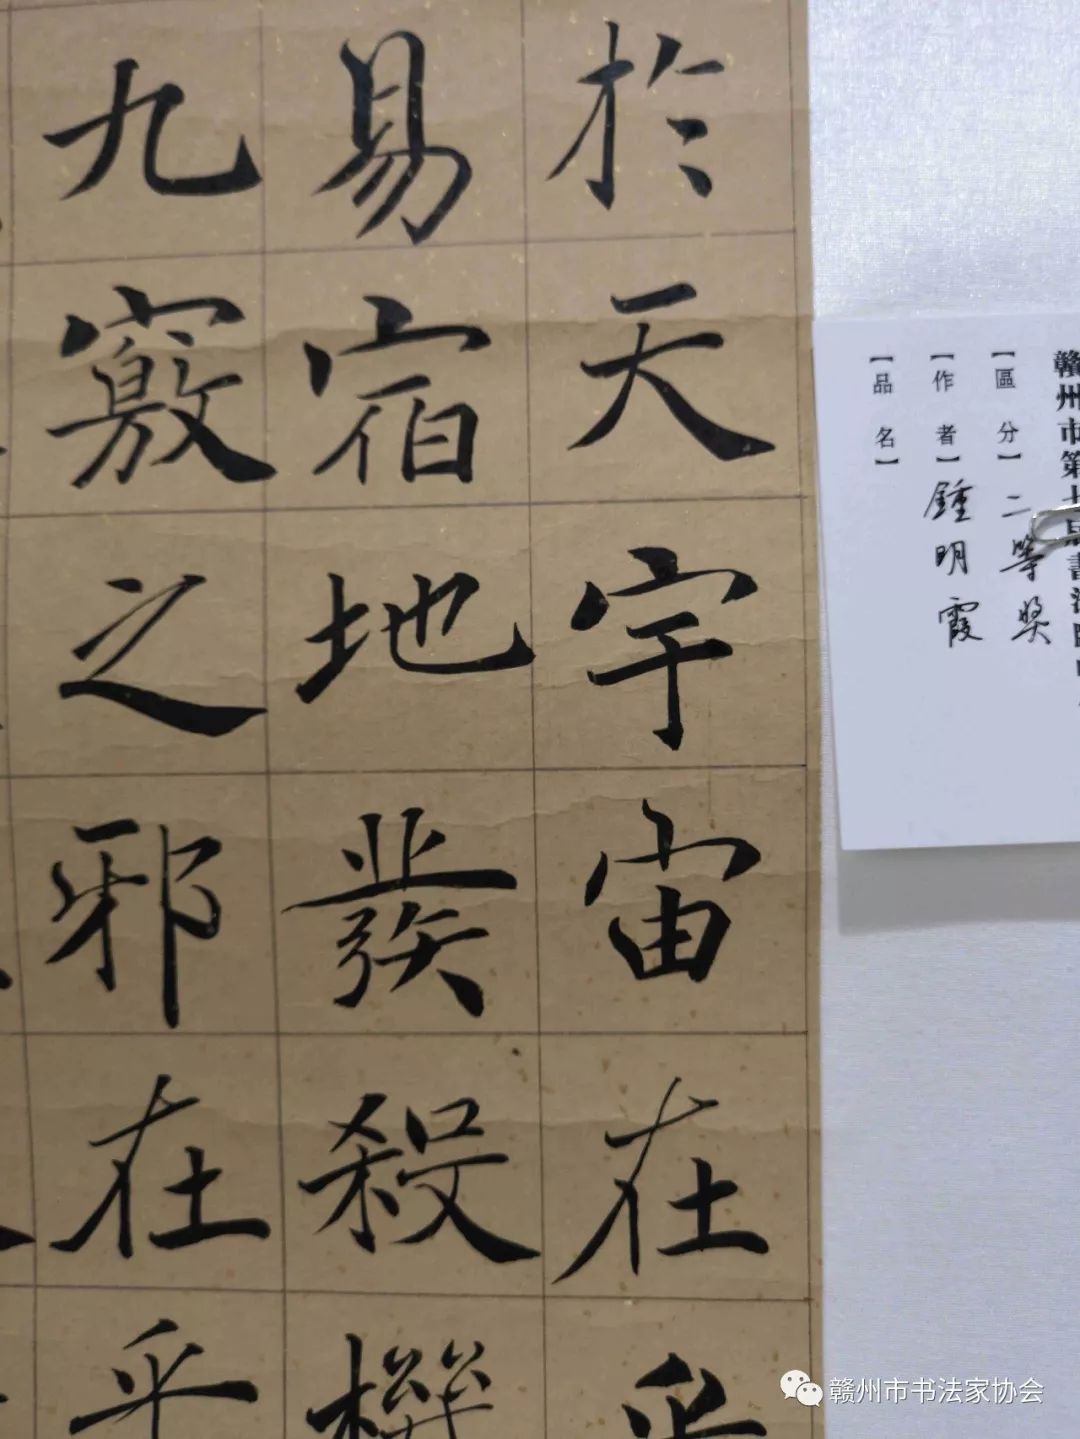 於天宇宙在乎
易宿地發殺機
九竅之邪在乎
贛州市第七屆書法
【區 分】二等奖
【作 者】鍾明霞
【品 名】
赣州市书法家协会